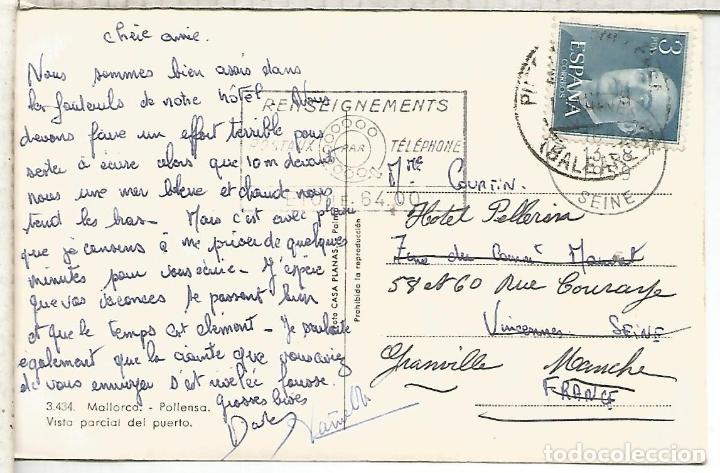 chère amie.
Nous sommes bien assis dans
les fauteuils de notre hôtel. Nous
devons faire un effort terrible pour
rester à écrire alors que 10 m devant
nous une mer bleue et chaude nous
tend les bras. Mais c'est avec plaisir
que je consens à me priver de quelques
minutes pour vous écrire. J'espère
que vos vacances se passent bien
et que le temps est clément. Je souhaite
également que la crainte que vous aviez
de vous ennuyer s'est révélée fausse.
grosses bises
3.434. Mallorca. - Pollensa.
Vista parcial del puerto.
Foto CASA PLANAS. Palma
Prohibida la reproducción
RENSEIGNEMENTS
POSTAUX PAR TÉLÉPHONE
ÉTOILE. 64.00
3 PTA
ESPAÑA
CORREOS
(BALEARES)
SEINE
Mme COURTIN.
Hotel Pellerin
58 et 60 Rue Couraye
Vincennes SEINE
Granville Manche
FRANCE